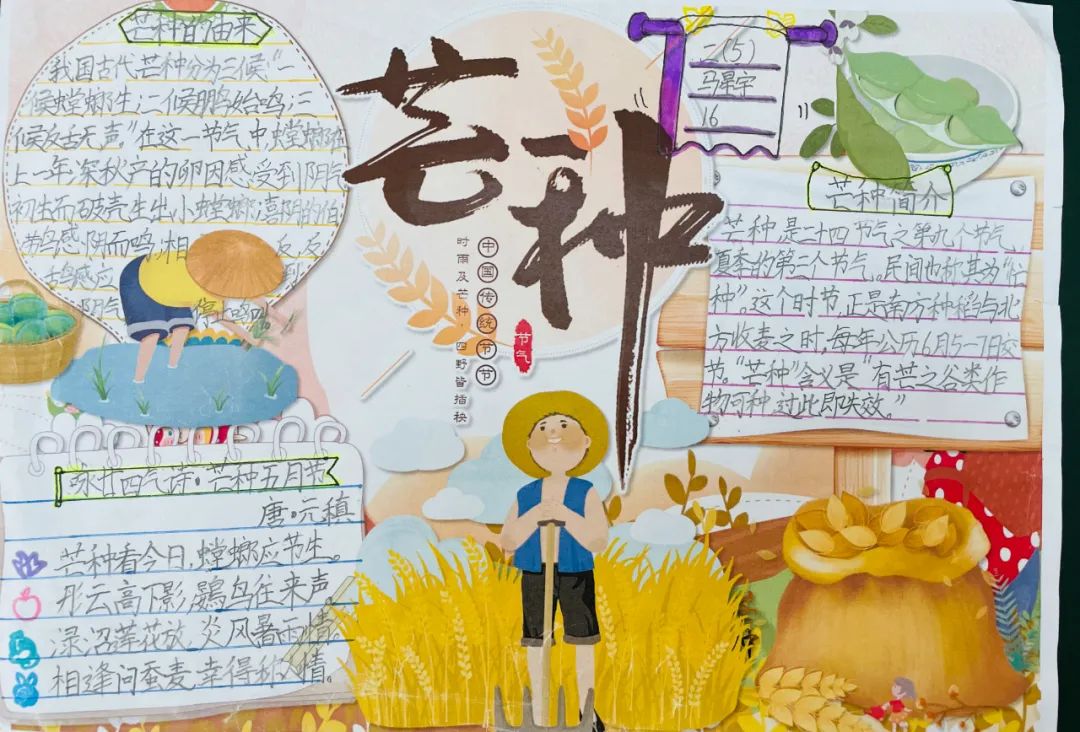 芒种的由来
我国古代芒种分为三候:“一
候螳螂生;二候鹏始鸣;三
候反舌无声。”在这一节气中,螳螂在
上一年深秋产的卵因感受到阴气
初生而破壳生出小螳螂;喜阴的伯
劳鸟感阴而鸣;相
阴气
停止鸣叫
芒种
中国传统节节
时雨及芒种,四野皆插秧
节气
二(5)
马星宇
16
芒种简介
芒种,是二十四节气之第九个节气、
夏季的第三个节气。民间也称其为“忙
种”。这个时节,正是南方种稻与北
方收麦之时,每年公历6月5-7日交
节。“芒种”含义是“有芒之谷类作
物可种,过此即失效。”
咏廿四气诗·芒种五月节
唐·元稹
芒种看今日,螳螂应节生。
彤云高下影,鴳鸟往来声。
渌沼莲花放,炎风暑雨情。
相逢问蚕麦,幸得称人情。